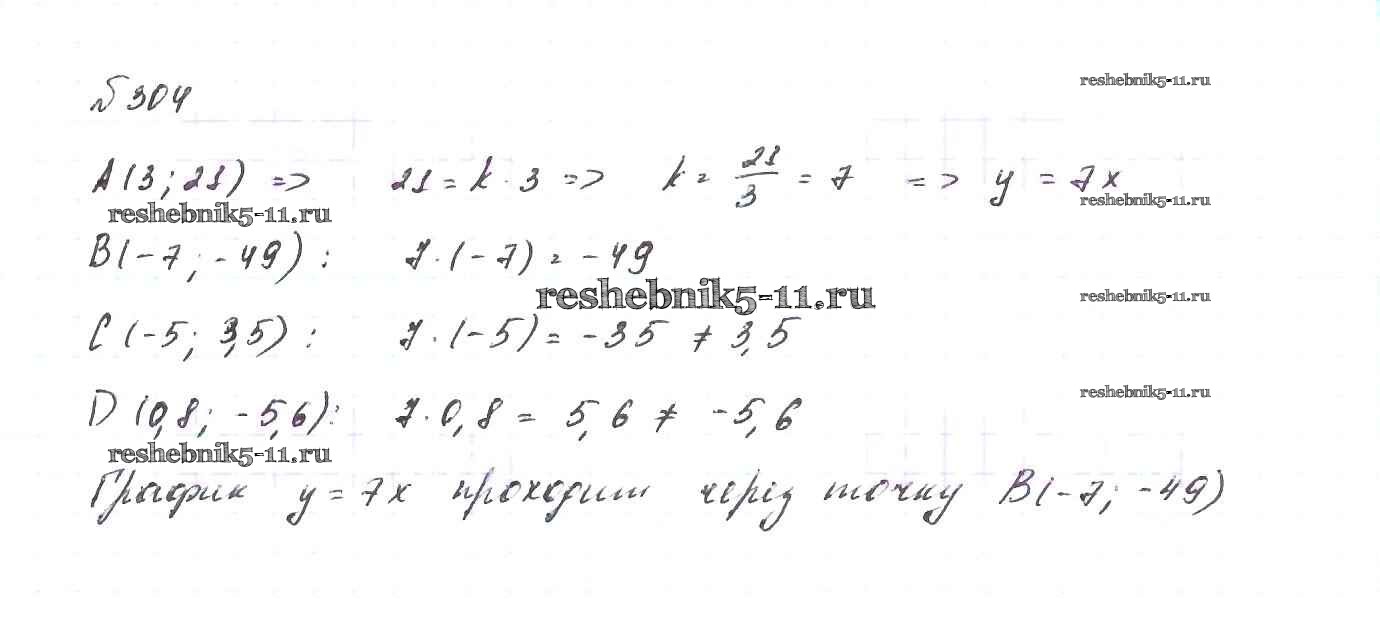 №304
reshebnik5-11.ru
A(3; 21) => 21 = k · 3 => k = 21/3 = 7 => y = 7x
reshebnik5-11.ru
reshebnik5-11.ru
B(-7; -49): 7 · (-7) = -49
reshebnik5-11.ru
reshebnik5-11.ru
C(-5; 3,5): 7 · (-5) = -35 ≠ 3,5
D(0,8; -5,6): 7 · 0,8 = 5,6 ≠ -5,6
reshebnik5-11.ru
reshebnik5-11.ru
График y = 7x проходит через точку B(-7; -49)